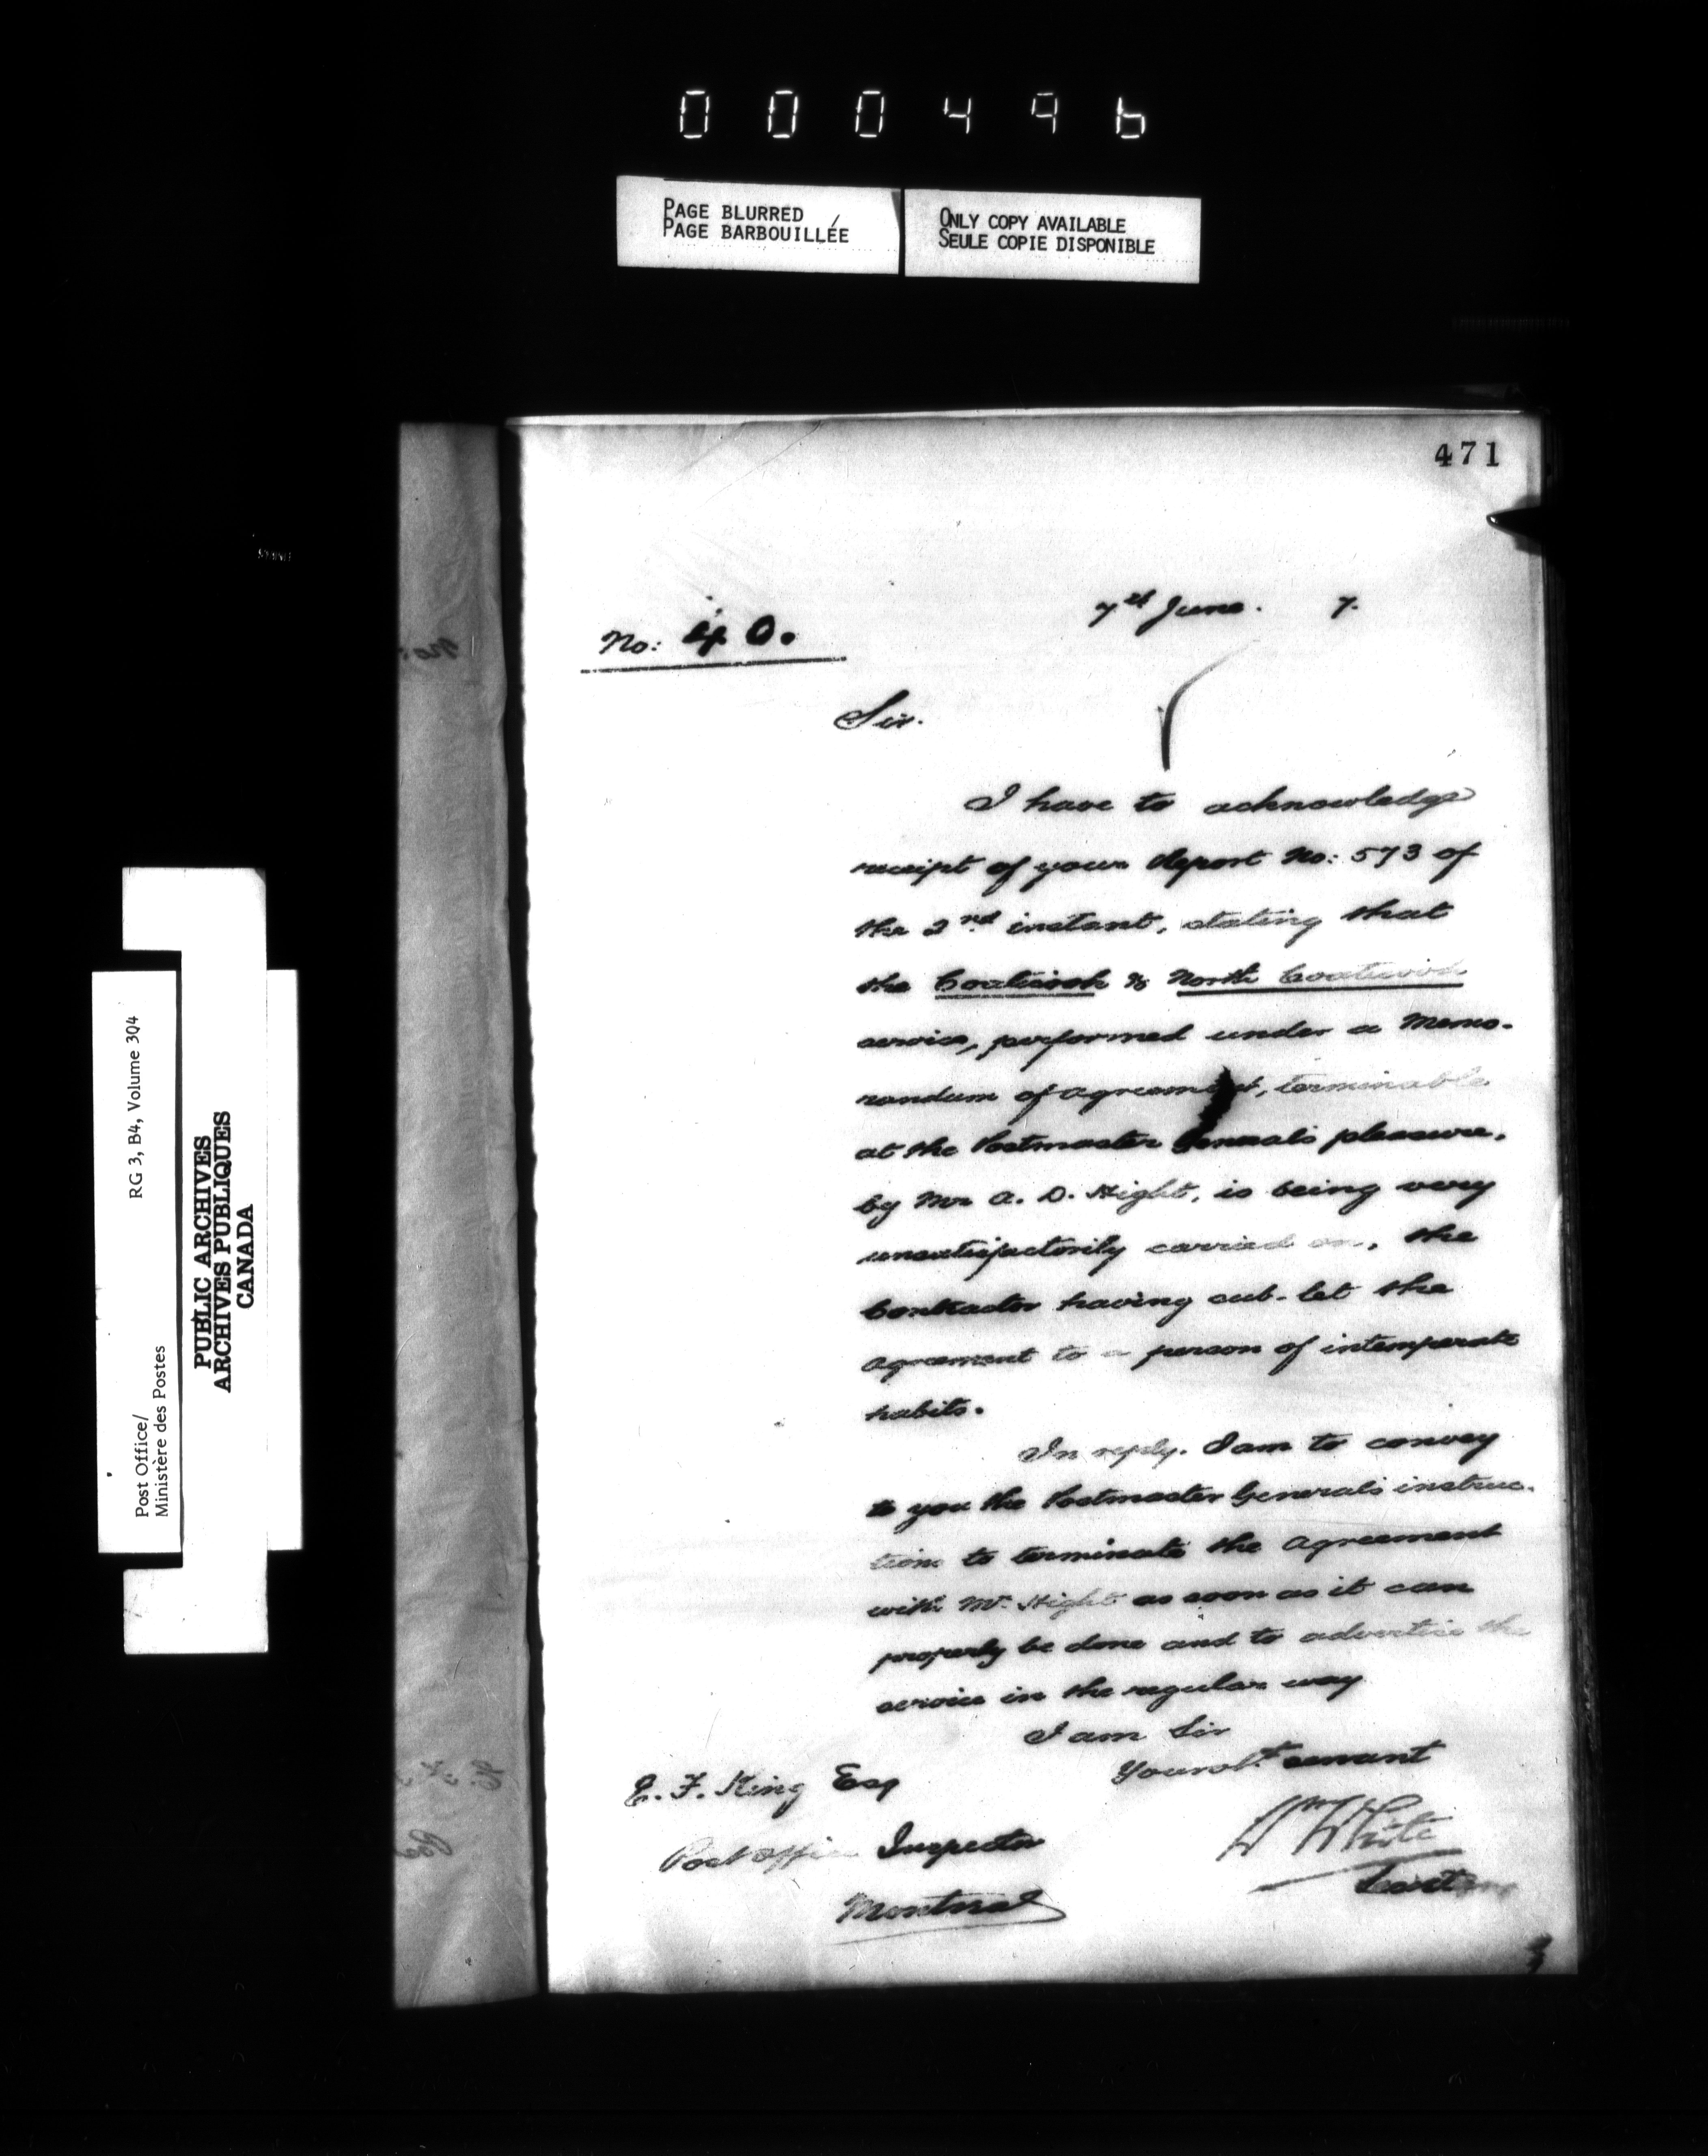 000496
PAGE BLURRED
PAGE BARBOUILLÉE
ONLY COPY AVAILABLE
SEULE COPIE DISPONIBLE
471
7th June. 7.
No: 40.
Sir.
I have to acknowledge
receipt of your Report No: 573 of
the 2nd instant, stating that
the Coaticook & North Coaticook
service, performed under a Memo-
randum of agreement, terminable
at the Postmaster General's pleasure,
by Mr A. O. Hight, is being very
unsatisfactorily carried on, the
Contractor having sub-let the
Agreement to a person of intemperate
habits.
In reply. I am to convey
to you the Postmaster General's instruc-
tions to terminate the Agreement
with Mr. Hight as soon as it can
properly be done and to advertise the
service in the regular way
I am Sir
Your obt. servant
Wm White
Secretary
E. F. King Esq
Post Office Inspector
Montreal
Post Office/
Ministère des Postes
RG 3, B4, Volume 304
PUBLIC ARCHIVES
ARCHIVES PUBLIQUES
CANADA